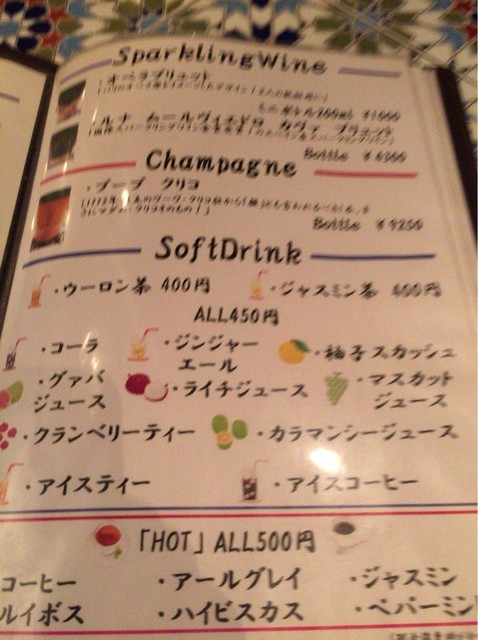 SparklingWine
・オーラブリュット
ミニボトル200ml ¥1000
・ルナ カールヴィエドロ カヴァ ブリュット
Bottle ¥4300
Champagne
・ブーブ クリコ
Bottle ¥9200
SoftDrink
・ウーロン茶 400円 ・ジャスミン茶 400円
ALL450円
・コーラ ・ジンジャーエール ・柚子スカッシュ
・グァバジュース ・ライチジュース ・マスカットジュース
・クランベリーティー ・カラマンシージュース
・アイスティー ・アイスコーヒー
「HOT」ALL500円
コーヒー ・アールグレイ ・ジャスミン
ルイボス ・ハイビスカス ・ペパーミン